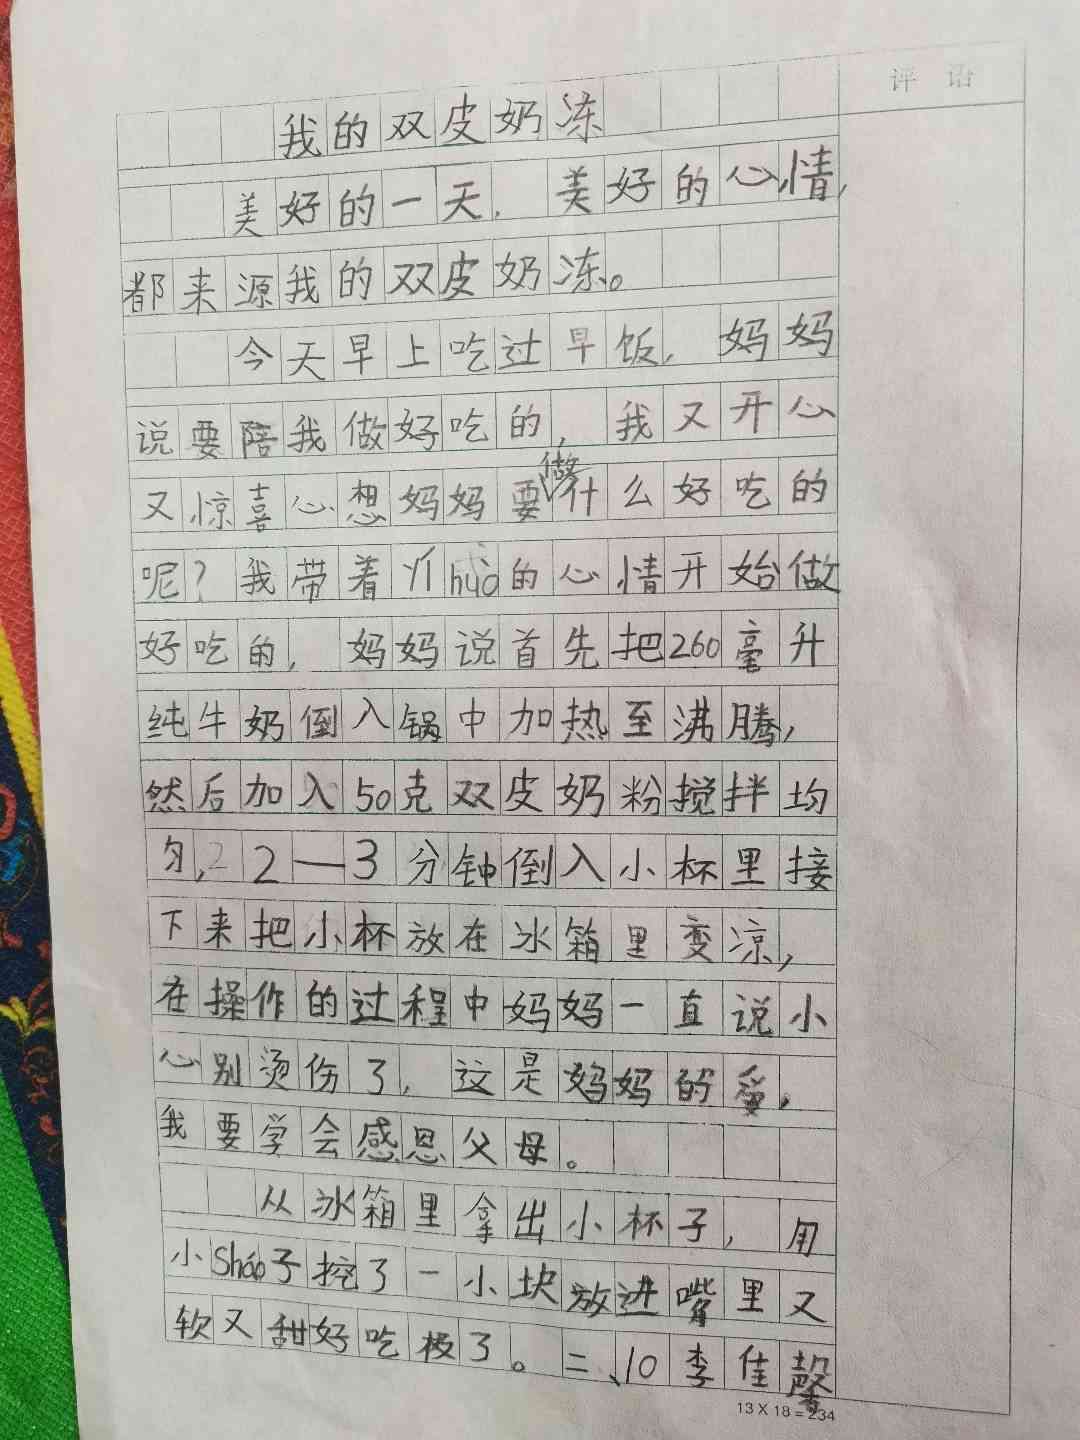 评语
我的双皮奶冻
美好的一天，美好的心情，
都来源我的双皮奶冻。
今天早上吃过早饭，妈妈
说要陪我做好吃的，我又开心
又惊喜心想妈妈要做什么好吃的
呢？我带着huò的心情开始做
好吃的，妈妈说首先把260毫升
纯牛奶倒入锅中加热至沸腾，
然后加入50克双皮奶粉搅拌均
匀，2 2—3分钟倒入小杯里接
下来把小杯放在冰箱里变凉，
在操作的过程中妈妈一直说小
心别烫伤了，这是妈妈的爱，
我要学会感恩父母。
从冰箱里拿出小杯子，用
小Sháo子挖了一小块放进嘴里又
软又甜好吃极了。二、10李佳馨
13×18=234